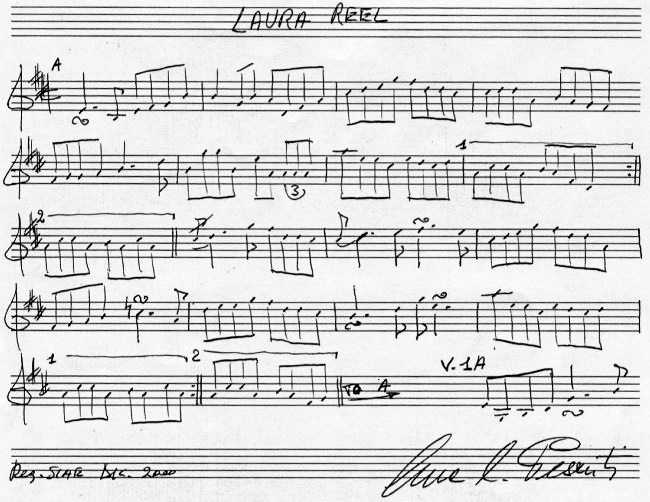 LAURA REEL
A
3
1
2
1 2 TO A V. 1A
DIC. 2000